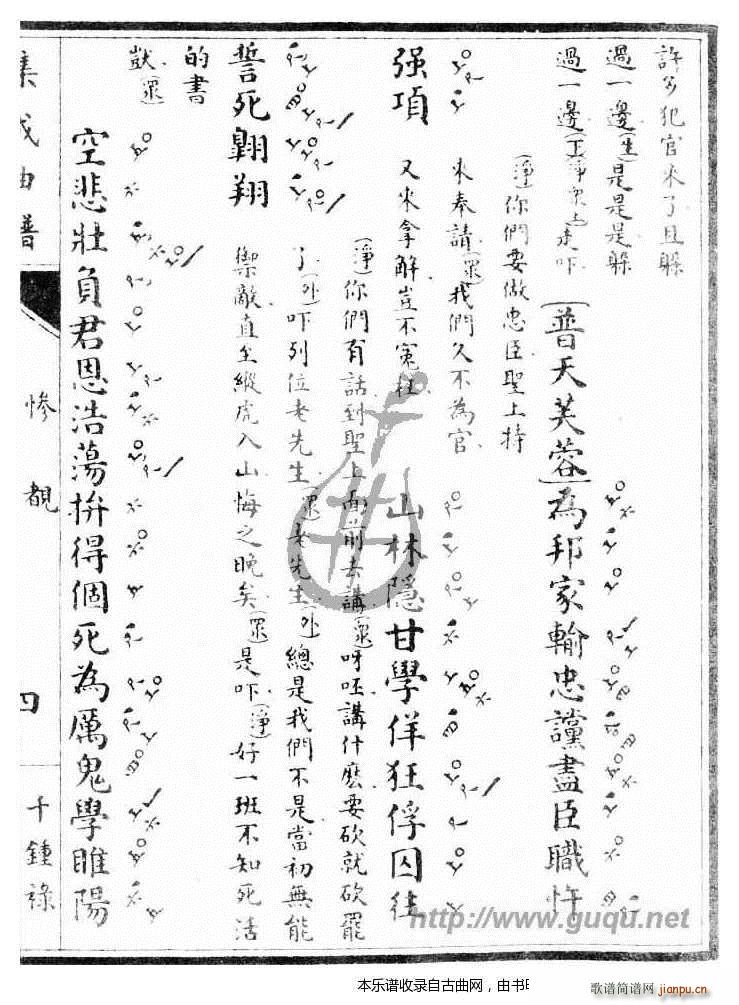 許多犯官來了且躲
過一邊(生)是是是躲
過一邊(正淨衆上)走吓(普天芙蓉)為邦家輸忠讜盡臣職忤
(淨)你們要做忠臣聖上特
來奉請(衆)我們久不為官
强項 又來拿解豈不冤枉 山林隱甘學佯狂俘囚往
(淨)你們有話到聖上面前去講(衆)呀呸講什麽要砍就砍罷
了(外)吓列位老先生(衆)老先生(外)總是我們不是當初無能
誓死翺翔 禦敵直至縱虎入山悔之晚矣(衆)是吓(淨)好一班不知死活
的書
獃(衆)
空悲壯負君恩浩蕩拚得個死為厲鬼學睢陽
集成曲譜
慘覩
四
千鍾祿
http://www.guqu.net
本乐谱收录自古曲网，由书
歌谱简谱网
jianpu.cn